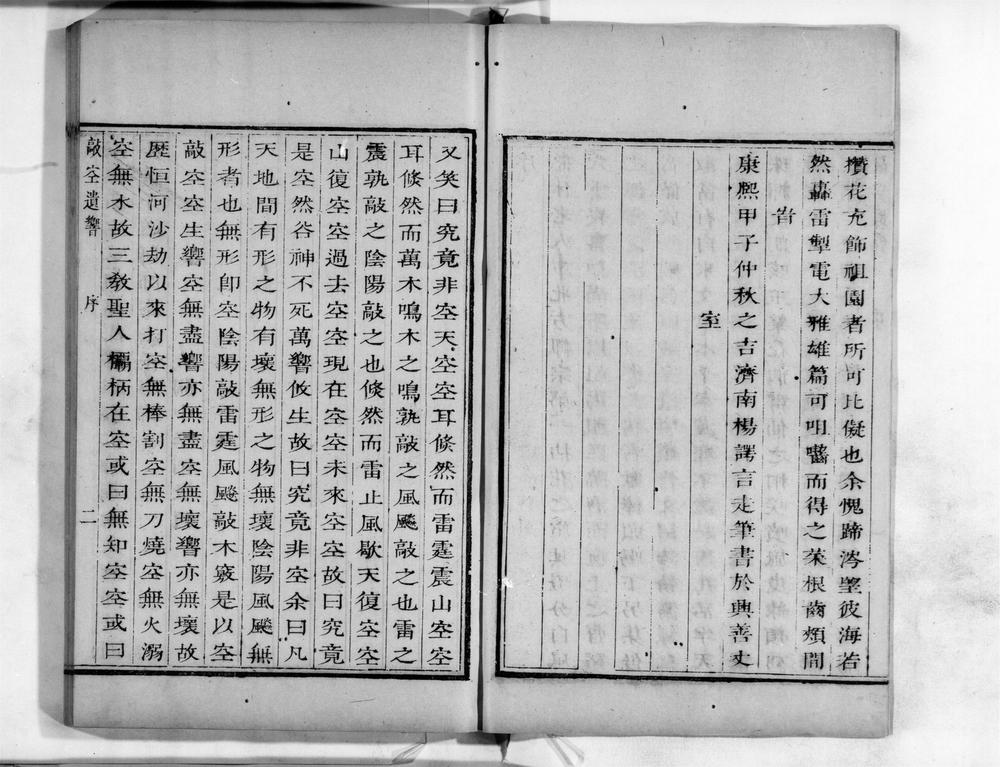 攢花充飾祖園者所可比儗也余愧蹄涔望彼海若
然轟雷掣電大雅雄篇可咀嚼而得之菜根齒頰間
旹
康熙甲子仲秋之吉濟南楊諤言走筆書於興善丈
室
又笑曰究竟非空天空空耳倏然而雷霆震山空空
耳倏然而萬木鳴木之鳴孰敲之風颷敲之也雷之
震孰敲之陰陽敲之也倏然而雷止風歇天復空空
山復空空過去空空現在空空未來空空故曰究竟
是空然谷神不死萬響攸生故曰究竟非空余曰凡
天地間有形之物有壞無形之物無壞陰陽風颷無
形者也無形卽空陰陽敲雷霆風颷敲木竅是以空
敲空空生響空無盡響亦無盡空無壞響亦無壞故
歷恒河沙劫以來打空無棒割空無刀燒空無火溺
空無水故三敎聖人欛柄在空或曰無知空空或曰
敲空遺響　序　二